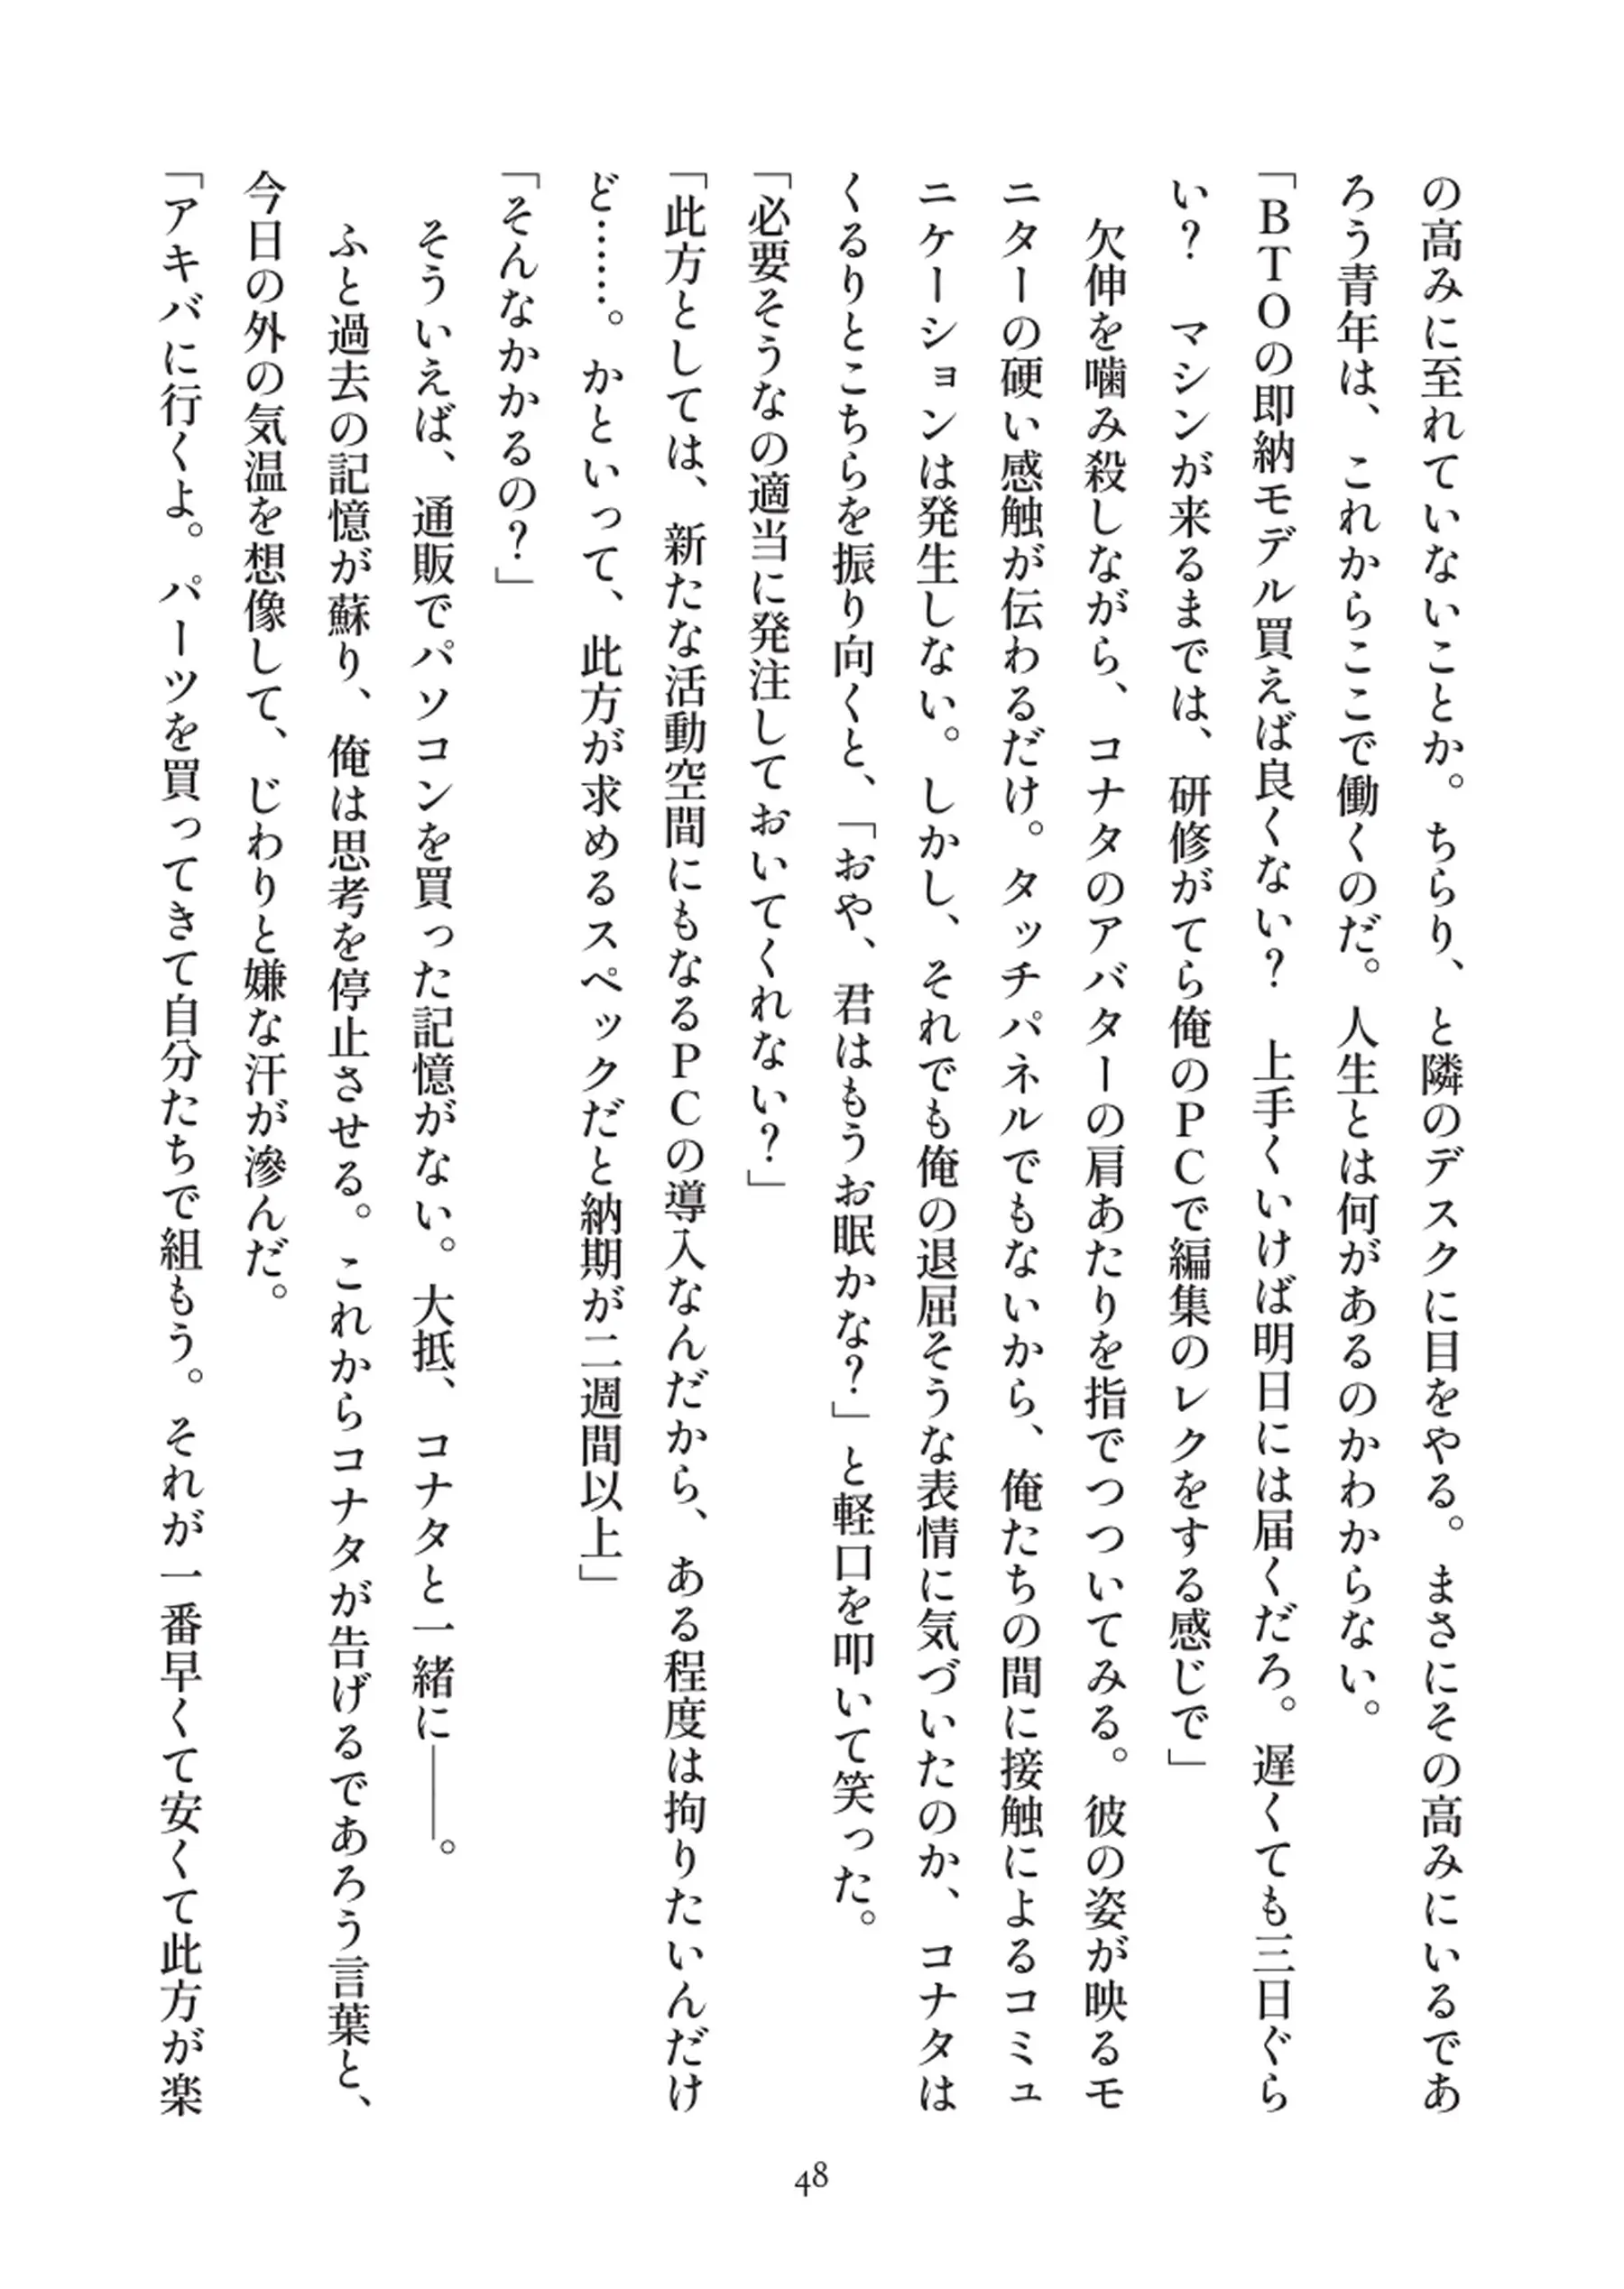 の高みに至れていないことか。ちらり、と隣のデスクに目をやる。まさにその高みにいるであ
ろう青年は、これからここで働くのだ。人生とは何があるのかわからない。
「ＢＴＯの即納モデル買えば良くない？　上手くいけば明日には届くだろ。遅くても三日ぐら
い？　マシンが来るまでは、研修がてら俺のＰＣで編集のレクをする感じで」
　欠伸を噛み殺しながら、コナタのアバターの肩あたりを指でつついてみる。彼の姿が映るモ
ニターの硬い感触が伝わるだけ。タッチパネルでもないから、俺たちの間に接触によるコミュ
ニケーションは発生しない。しかし、それでも俺の退屈そうな表情に気づいたのか、コナタは
くるりとこちらを振り向くと、「おや、君はもうお眠かな？」と軽口を叩いて笑った。
「必要そうなの適当に発注しておいてくれない？」
「此方としては、新たな活動空間にもなるＰＣの導入なんだから、ある程度は拘りたいんだけ
ど……。かといって、此方が求めるスペックだと納期が二週間以上」
「そんなかかるの？」
　そういえば、通販でパソコンを買った記憶がない。大抵、コナタと一緒に――。
　ふと過去の記憶が蘇り、俺は思考を停止させる。これからコナタが告げるであろう言葉と、
今日の外の気温を想像して、じわりと嫌な汗が滲んだ。
「アキバに行くよ。パーツを買ってきて自分たちで組もう。それが一番早くて安くて此方が楽
48